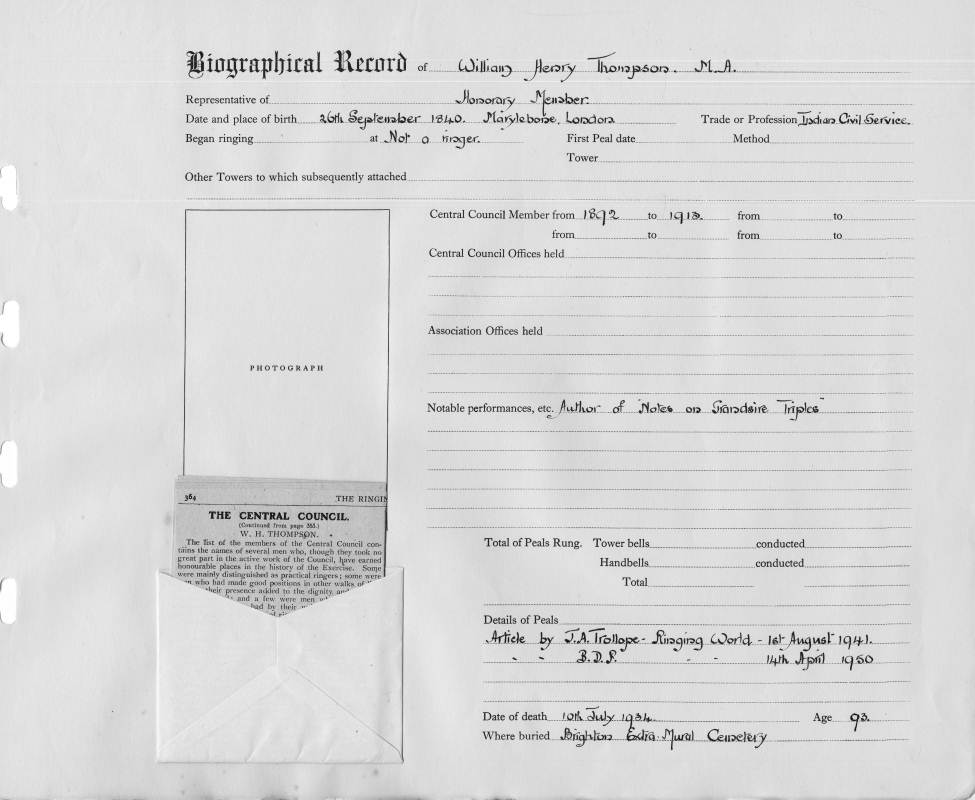 Biographical Record of William Henry Thompson. M.A.
Representative of Honorary Member.
Date and place of birth 26th September 1840. Marylebone, London Trade or Profession Indian Civil Service.
Began ringing at Not a ringer. First Peal date Method
Tower
Other Towers to which subsequently attached
Central Council Member from 1892 to 1913. from to
from to from to
Central Council Offices held
Association Offices held
PHOTOGRAPH
Notable performances, etc. Author of "Notes on Grandsire Triples"
364 THE RINGIN
THE CENTRAL COUNCIL.
(Continued from page 355.)
W. H. THOMPSON.
The list of the members of the Central Council con-
tains the names of several men who, though they took no
great part in the active work of the Council, have earned
honourable places in the history of the Exercise. Some
were mainly distinguished as practical ringers; some were
who had made good positions in other walks of
their presence added to the dignity
and a few were men
had by their
Total of Peals Rung. Tower bells conducted
Handbells conducted
Total
Details of Peals
Article by J.A. Trollope - Ringing World - 1st August 1941.
" " B.D.P. " " 14th April 1950
Date of death 10th July 1934. Age 93.
Where buried Brighton Extra-Mural Cemetery